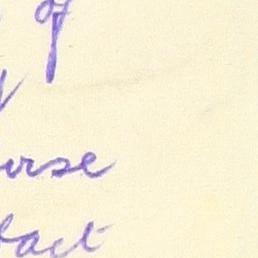 of
y
urse
fact